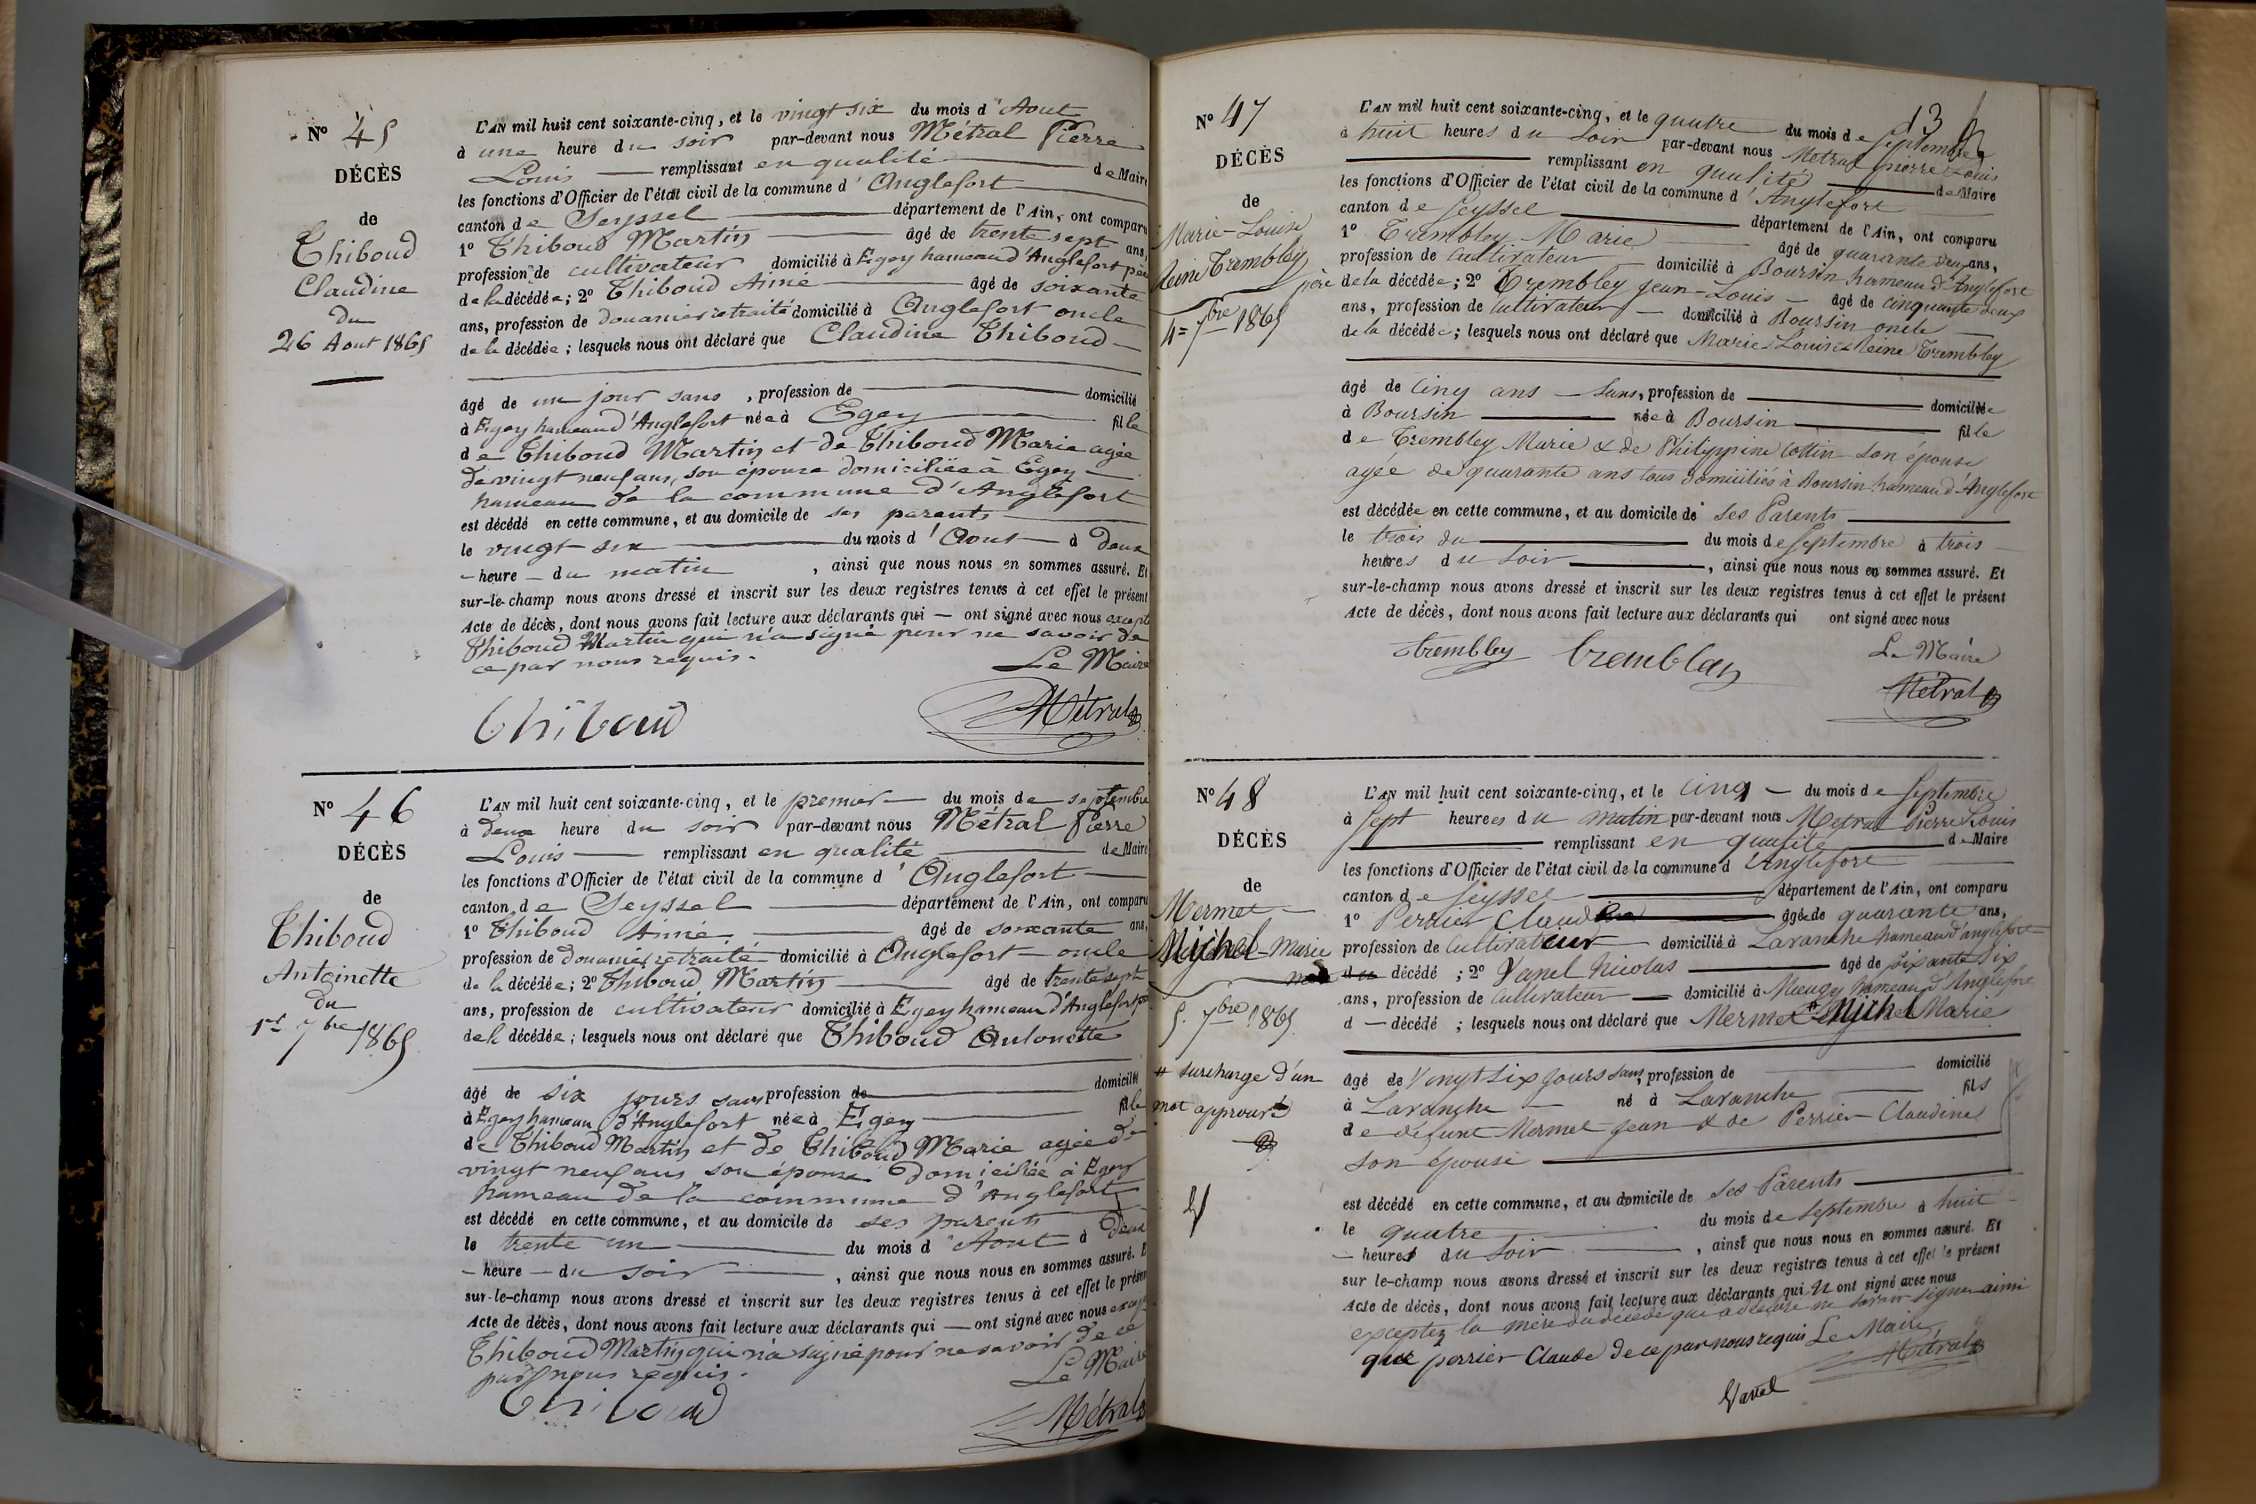 N° 45
DÉCÈS
de
Thiboud
Claudine
du
26 Aout 1865
L'AN mil huit cent soixante-cinq, et le vingt six du mois d'Aout
à une heure du soir par-devant nous Métral Pierre
Louis remplissant en qualité de Maire
les fonctions d'Officier de l'état civil de la commune d'Anglefort
canton de Seyssel département de l'Ain, ont comparu
1° Thiboud Martin âgé de trente sept ans,
profession de cultivateur domicilié à Egey hameau d'Anglefort père
de la décédée; 2° Thiboud Aimé âgé de soixante
ans, profession de douanier retraité domicilié à Anglefort oncle
de la décédée; lesquels nous ont déclaré que Claudine Thiboud
âgé de un jour sans, profession de domicilié
à Egey hameau d'Anglefort née à Egey fille
de Thiboud Martin et de Thiboud Marie agée
de vingt neuf ans, son épouse domiciliée à Egey
hameau de la commune d'Anglefort
est décédé en cette commune, et au domicile de ses parents
le vingt six du mois d'Aout à deux
heure du matin, ainsi que nous nous en sommes assuré. Et
sur-le-champ nous avons dressé et inscrit sur les deux registres tenus à cet effet le présent
Acte de décès, dont nous avons fait lecture aux déclarants qui — ont signé avec nous excepté
Thiboud Martin qui n'a signé pour ne savoir de
ce par nous requis.
Le Maire
Thiboud Métral
N° 46
DÉCÈS
de
Thiboud
Antoinette
du
1er 7bre 1865
L'AN mil huit cent soixante-cinq, et le premier du mois de septembre
à deux heure du soir par-devant nous Métral Pierre
Louis remplissant en qualité de Maire
les fonctions d'Officier de l'état civil de la commune d'Anglefort
canton de Seyssel département de l'Ain, ont comparu
1° Thiboud Aimé âgé de soixante ans,
profession de douanier retraité domicilié à Anglefort oncle
de la décédée; 2° Thiboud Martin âgé de trente sept
ans, profession de cultivateur domicilié à Egey hameau d'Anglefort père
de la décédée; lesquels nous ont déclaré que Thiboud Antoinette
âgé de six jours sans profession de domicilié
à Egey hameau d'Anglefort née à Egey fille
de Thiboud Martin et de Thiboud Marie agée de
vingt neuf ans son épouse domiciliée à Egey
hameau de la commune d'Anglefort
est décédé en cette commune, et au domicile de ses parents
le trente un du mois d'Aout à deux
heure du soir, ainsi que nous nous en sommes assuré. Et
sur-le-champ nous avons dressé et inscrit sur les deux registres tenus à cet effet le présent
Acte de décès, dont nous avons fait lecture aux déclarants qui — ont signé avec nous excepté
Thiboud Martin qui n'a signé pour ne savoir de ce
par nous requis.
Le Maire
Thiboud Métral
13
N° 47
DÉCÈS
de
Marie-Louise
Reine Trembley
4 = 7bre 1865
L'AN mil huit cent soixante-cinq, et le quatre du mois de Septembre
à huit heures du soir par-devant nous Metral pierre Louis
remplissant en qualité de Maire
les fonctions d'Officier de l'état civil de la commune d'Anglefort
canton de Seyssel département de l'Ain, ont comparu
1° Trembley Marie âgé de quarante deux ans,
profession de Cultivateur domicilié à Boursin hameau d'Anglefort
père de la décédée; 2° Trembley Jean-Louis âgé de cinquante deux
ans, profession de Cultivateur domicilié à Boursin oncle
de la décédée; lesquels nous ont déclaré que Marie Louise Reine Trembley
âgé de Cinq ans sans, profession de domiciliée
à Boursin née à Boursin fille
de Trembley Marie & de Philippine Cottin son épouse
agée de quarante ans tous domiciliés à Boursin hameau d'Anglefort
est décédée en cette commune, et au domicile de ses Parents
le trois du du mois de Septembre à trois
heures du soir, ainsi que nous nous en sommes assuré. Et
sur-le-champ nous avons dressé et inscrit sur les deux registres tenus à cet effet le présent
Acte de décès, dont nous avons fait lecture aux déclarants qui ont signé avec nous
Le Maire
Trembley tremblay Métral
N° 48
DÉCÈS
de
Mermet
Michel Marie
5. 7bre 1865
# surcharge d'un
mot approuvé
L'AN mil huit cent soixante-cinq, et le cinq du mois de Septembre
à sept heures du matin par-devant nous Metral Pierre Louis
remplissant en qualité de Maire
les fonctions d'Officier de l'état civil de la commune d'Anglefort
canton de Seyssel département de l'Ain, ont comparu
1° Perrier Claude âgé de quarante ans,
profession de Cultivateur domicilié à Lavanche hameau d'anglefort
décédé; 2° Vanel Nicolas âgé de soixante six
ans, profession de Cultivateur domicilié à hameau d'Anglefort
d — décédé; lesquels nous ont déclaré que Mermet # Michel Marie
âgé de Vingt six jours sans, profession de domicilié
à Lavanche né à Lavanche fils
de défunt Mermet Jean & de Perrier Claudine
son épouse
est décédé en cette commune, et au domicile de ses Parents
le quatre du mois de Septembre à huit
heures du soir, ainsi que nous nous en sommes assuré. Et
sur le-champ nous avons dressé et inscrit sur les deux registres tenus à cet effet le présent
Acte de décès, dont nous avons fait lecture aux déclarants qui ont signé avec nous
exceptez la mère du décédé qui a déclaré ne savoir signer ainsi
que perrier Claude de ce par nous requis Le Maire
Métral
Vanel